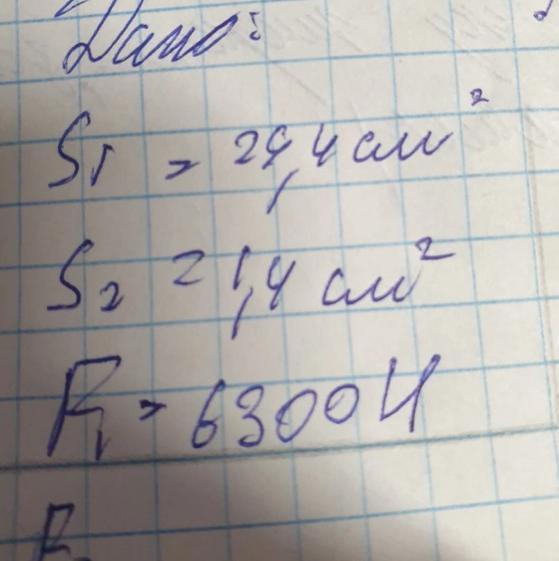 Дано:
S₁ = 24,4 см²
S₂ = 1,4 см²
F₁ = 6300 Н
F₂